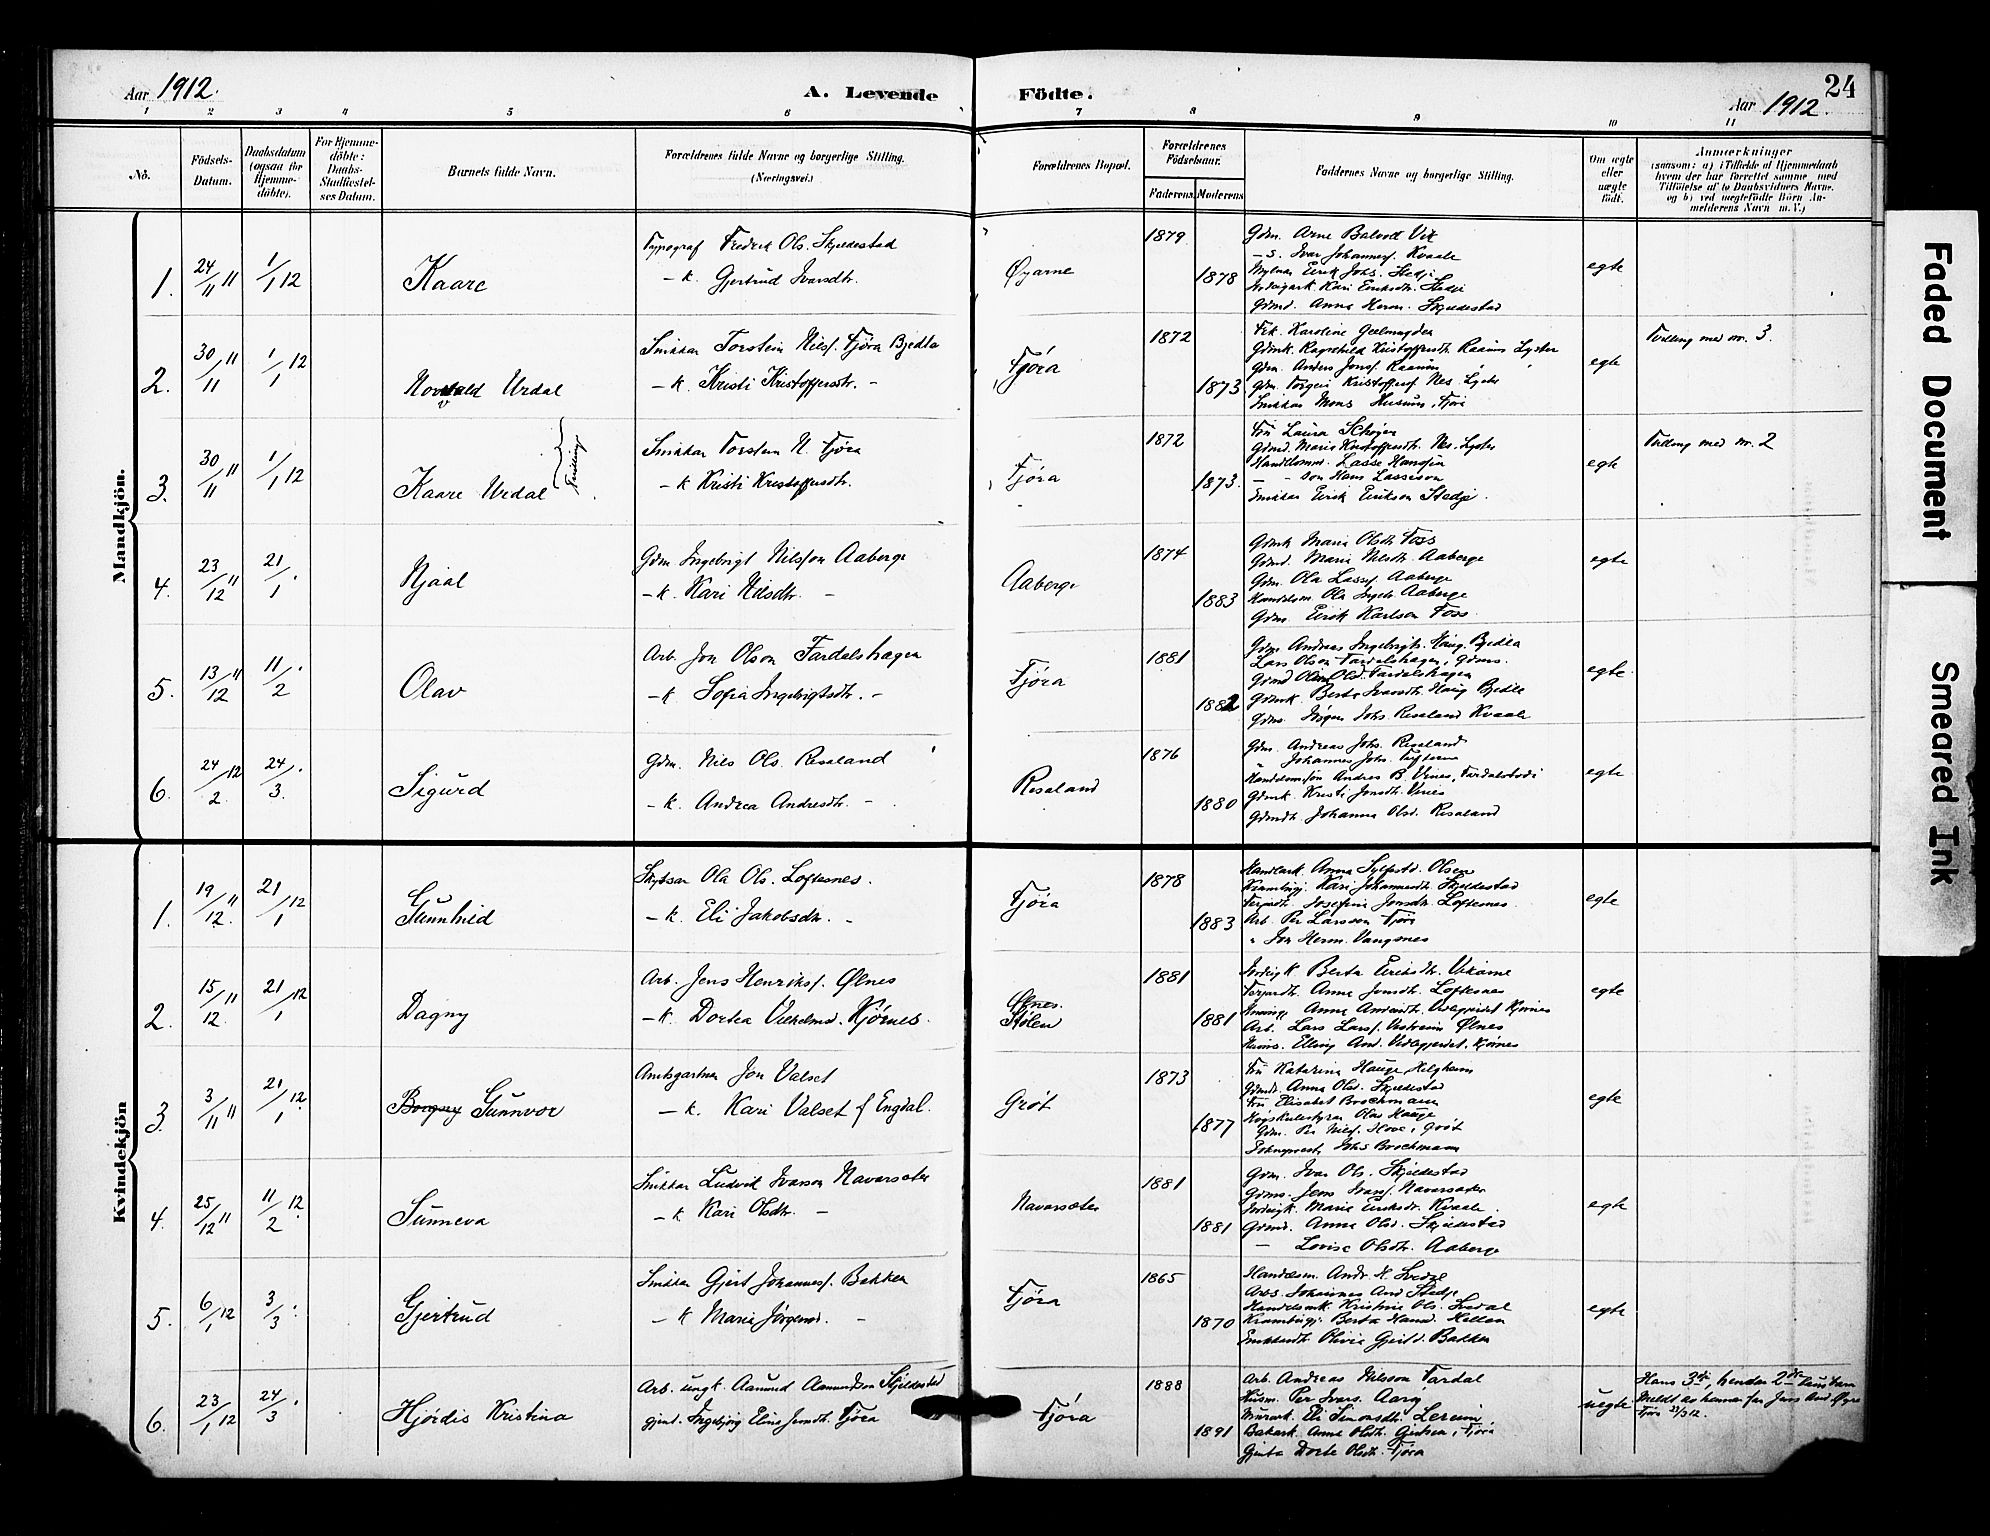 Aar 1912.
A. Levende Födte.
24
Aar 1912.
1 2 3 4 5 6 7 8 9 10 11
No.
Födsels-Datum.
Daabsdatum (ogsaa for Hjemme-döbte).
For Hjemme-döbte: Daabs-Stadfæstel-ses Datum.
Barnets fulde Navn.
Forældrenes fulde Navne og borgerlige Stilling. (Næringsvei.)
Forældrenes Bopæl.
Forældrenes Födselsaar.
Faderens Moderens
Faddernes Navne og borgerlige Stilling.
Om ægte eller uægte födt.
Anmærkninger
(saasom: a) i Tilfælde af Hjemmedaab
hvem der har forrettet samme med
Tilföielse af to Daabsvidners Navne.
og b) ved uægtefödte Börn An-
melderens Navn m. V.)
Mandkjön.
1. 24/11 11 1/1 12 Kaare
Typograf Fredrik Ols. Skjeldestad
– k. Gjertrud Ivarsdtr.
Øyarne
1879
1878
Gdm. Arne Vik
– s. Ivar Johannesf. Kvaale
Eirik Johs. Stedje
Kari Eiriksdtr. Stedje
Gdmd. Anna Herm. Skjeldestad
egte
2. 30/11 11 1/1 12 Norvald Urdal
Snikkar Torstein Nilsf. Fjøra
– k. Kristi Kristoffersdtr. –
Fjøra
1872
1873
Frk. Karoline
Gdmk. Ragnhild Kristoffersdtr. Raaum Lyster
Gdm. Anders Jonsf. Raaum
Gdm. Torgeir Kristoffersf. Nes. Lyster
Snikkar Mons Husum, Fjøra
egte
Tvilling med nr. 3.
3. 30/11 11 1/1 12 Kaare Urdal
Tvilling
Snikkar Torstein N. Fjøra
– k Kristi Kristoffersdtr.
Fjøra
1872
1873.
Fru Laura Schøyen
Gdmd. Maria Kristoffersdtr. Nes. Lyster
Handelsm. Lasse Hansson
– – son Hans Lasseson
Snikkar Eirik Eirikson Stedje.
egte
Tvilling med nr. 2
4. 23/12 11 21/1 Njaal
Gdm Ingebrigt Nilsson Aaberge
– k. Kari Nilsdtr. –
Aaberge
1874
1883
Gdmk Maria Olsdtr. Foss
Gdmd. Marie Nilsdtr. Aaberge
Gdm. Ola Lassef. Aaberge
Handelsm. Ola Ingebr. Aaberge
Gdm. Eirik Karlson Foss.
egte
5. 13/12 11 11/2 Olav
Arb. Jon Olson Fardalshagen
– k Sofia Ingebrigtsdtr. –
Fjøra
1881
1882
Gdm Andreas Ingebrigts. Haug. Bjedla
Lars Olson Fardalshagen, Gdms.
Gdmd Olsd. Fardalshagen
Gdmk. Berta Ivarsdtr. Haug Bjedla
Gdms. Jørgen Johs. Reseland Kvaale
egte.
6. 24/2 12 24/3 Sigurd
Gdm. Nils Ols. Reseland
– k. Andrea Andresdtr. –
Reseland
1876
1880
Gdm. Andreas Johs. Reseland
" Johannes Johs.
Andres B. Vines, Fardalsbodi
Gdmk. Kristi Jonsdtr. Vines
Gdmdtr. Johanna Olsd. Reseland
egte
Kvindekjön
1. 19/12 11 21/1 12 Gunnhild
Ola Ols. Loftesnes.
– k. Eli Jakobsdtr. –
Fjøra
1878
1883
Handlark. Anna Sylfestd. Olsen
Krambugj. Kari Johannesdtr. Skjeldestad
Josefine Jonsdtr. Loftesnes
Arb. Per Larsson Fjøra
" Jon Herm. Vangsnes
egte
2. 15/12 11 21/1 12 Dagny
Arb. Jens Henriksf. Ølnes
– k. Dortea Vilhelmsd. Kjørnes.
Ølnes.
Stølen
1881
1881
Berta Eiriksdtr. Vikarne
Anna Jonsdtr. Loftesnes
Anna Andersdtr. Kjørnes
Arb. Lars Larsf. Ølnes
Husm. Elling And. Kjørnes
egte
3. 3/11 11 21/1 12 Borgny Gunnvor
Amtsgartnar Jon Valset
– k. Kari Valset f. Engdal.
Grøt
1873
1877
Fru Katarina Hauge Helgheim
Gdmdr Anna Olsd. Skjeldestad
Fru Elisabet Brochmann
Høgskulestyrar Olav Hauge
Gdm. Per Nilsf. Hove, Grøt
Sokneprest Johs Brochmann
egte
4. 25/12 11 11/2 12 Sunneva
Snikkar Ludvik Ivarson Navarseter
– k Kari Olsdtr. –
Navarseter
1881
1881
Gdm. Ivar Ols. Skjeldestad
Gdms. Jens Ivarsf. Navarseter
Marie Eiriksdr. Kvaale.
Gdmd. Anna Olsd. Skjeldestad
– Lovise Olsdtr. Aaberge
egte
5. 6/1 12 3/3 Gjertrud
Snikkar Gjert Johannesf. Bakken
– k Maria Jørgensd. –
Fjøra
1865
1870
Handelsm. Andr. H. Svedal
Arb. Johannes And Stedje
Handelsmk Kristine Ols. Svedal
Krambugj. Berta Hansd. Hellen
Snikkardtr. Olivia Gjertsd. Bakken
egte
6. 23/1 12 24/3 Hjørdis Kristina
Arb. ungk. Aamund Aamundson Skjeldestad
gjent. Ingebjørg Elina Jonsdtr. Fjøra
Fjøra
1888
1891
Arb. Andreas Nilsson Fardal
Husm. Per Ivars. Aarøy
Murark. Eli Simonsdtr. Lereim
Bakark. Anna Olsdtr. Gjertsen, Fjøra
Gjenta Dorte Olsdtr. Fjøra
uegte
Hans 3dje, hennar 2dre lausbarn
Meldt av henne far Jons And Øyre
Fjøra 23/3 12.
Faded Document
Smeared Ink